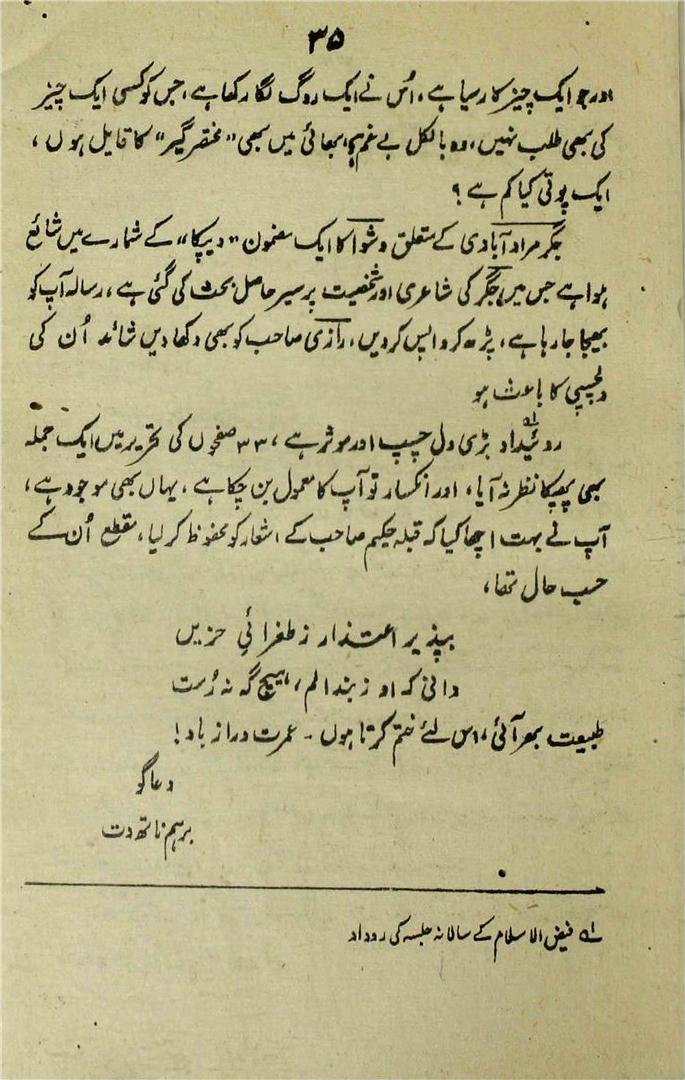 ۳۵
اور جو ایک چیز کا رسیا ہے، اُس نے ایک روگ لگا رکھا ہے، جس کو کسی ایک چیز
کی بھی طلب نہیں، وہ بالکل بے غم ہے، بھائی میں بھی “مختصر گیر” کا قایل ہوں،
ایک پوتی کیا کم ہے ؟
جگر مراد آبادی کے متعلق وشوا کا ایک مضمون “دیپکا” کے شمارے میں شائع
ہوا ہے جس میں جگر کی شاعری اور شخصیت پر سیر حاصل بحث کی گئی ہے، رسالہ آپ کو
بھیجا جا رہا ہے، پڑھ کر واپس کر دیں، رازی صاحب کو بھی دکھا دیں شائد اُن کی
دلچسپی کا باعث ہو
روئیداد ؎۱ بڑی دل چسپ اور موثر ہے، ۳۳ صفحوں کی تحریر میں ایک جملہ
بھی پھیکا نظر نہ آیا، اور انکسار تو آپ کا معمول بن چکا ہے، یہاں بھی موجود ہے،
آپ نے بہت اچھا کیا کہ قبلہ حکیم صاحب کے اشعار کو محفوظ کر لیا، مقطع اُن کے
حسب حال تھا،
بپذیر اعتذار ز طغرائیِ حزیں
دانی کہ او ز بند الم، ہیچ گہ نہ رُست
طبیعت بھر آئی، اس لئے ختم کرتا ہوں۔ عمرت دراز باد!
دعا گو
برہم ناتھ دت
؎۱ فیض الاسلام کے سالانہ جلسہ کی روداد